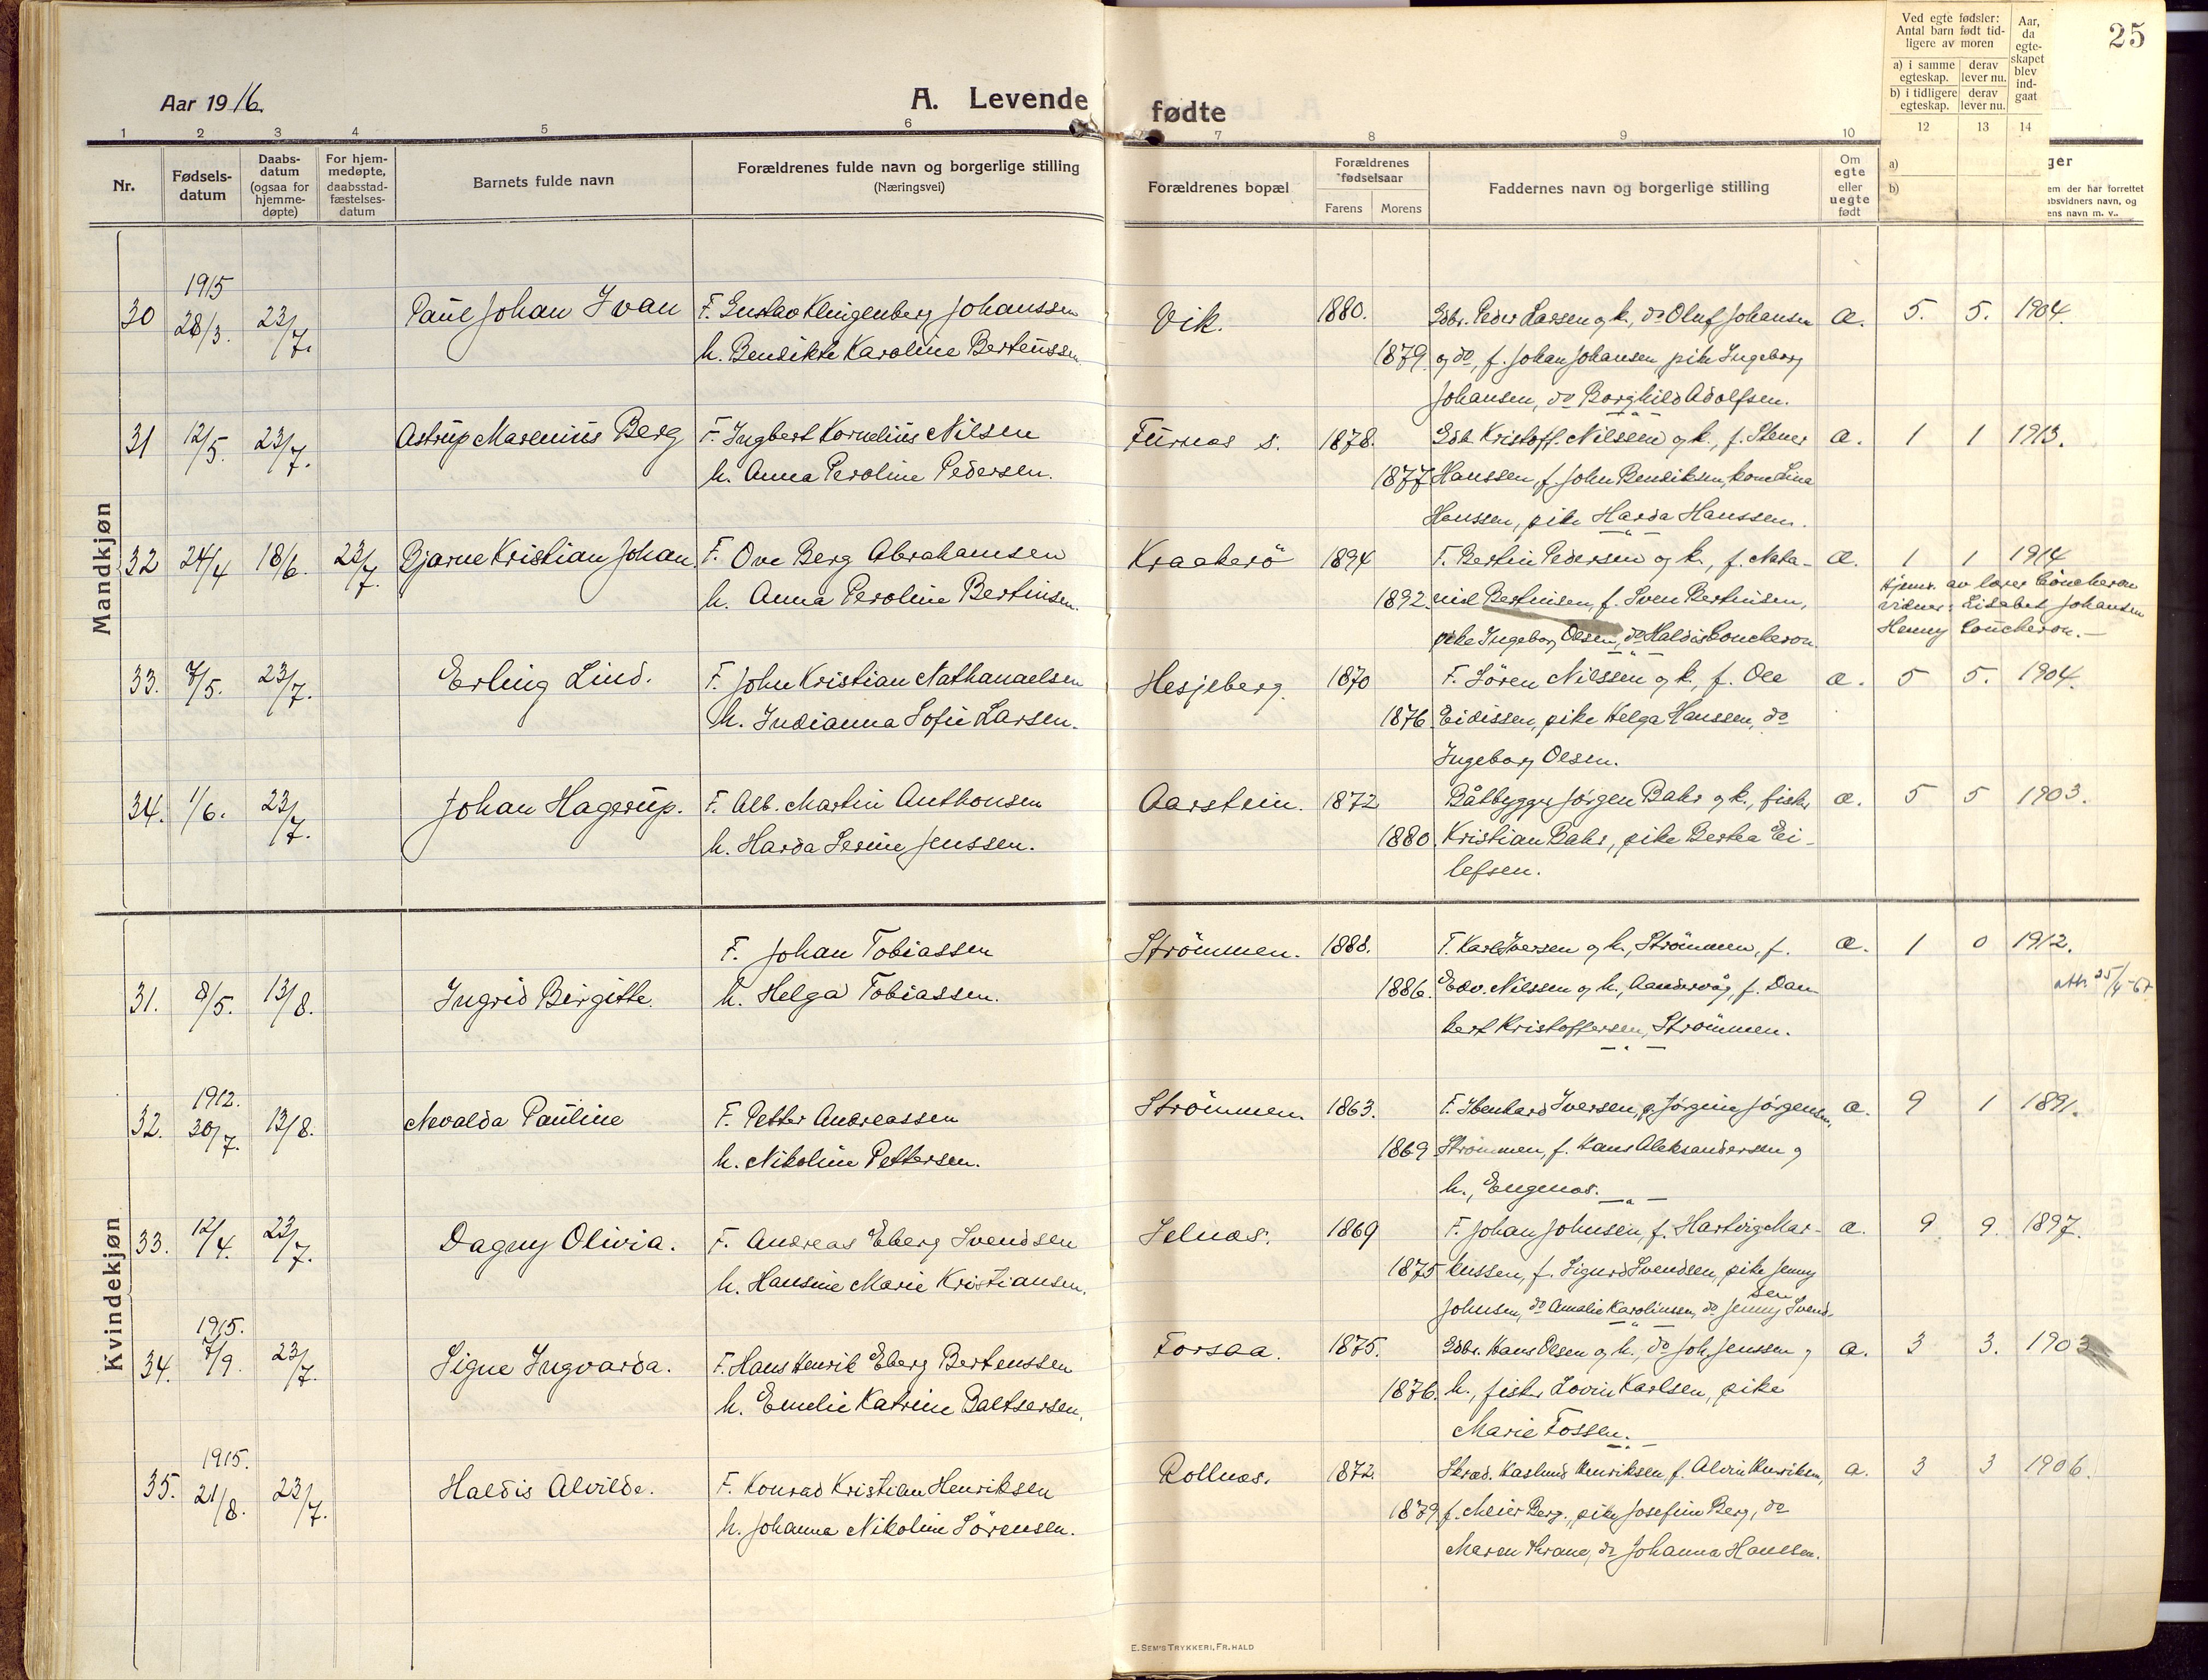 25
Aar 1916.
A. Levende fødte
Ved egte fødsler: Antal barn født tidligere av moren
a) i samme egteskap.
derav lever nu.
b) i tidligere egteskap.
derav lever nu.
Aar, da egteskapet blev indgaat
1 2 3 4 5 6 7 8 9 10 12 13 14
Nr.
Fødselsdatum
Daabsdatum (ogsaa for hjemmedøpte)
For hjemmedøpte, daabsstadfæstelsesdatum
Barnets fulde navn
Forældrenes fulde navn og borgerlige stilling (Næringsvei)
Forældrenes bopæl
Forældrenes fødselsaar
Farens Morens
Faddernes navn og borgerlige stilling
Om egte eller uegte født
a)
b)
Mandkjøn
30 1915 28/3. 23/7. Paul Johan Ivan F. Gustav Klingenberg Johanssen Vik. 1880. Gdbr. Peder Larsen og k., do Oluf Johansen æ. 5. 5. 1904.
h. Bendikte Karoline Berteussen 1879. og do, f. Johan Johansen, pike Ingeborg
Johansen, do Borghild Adolfsen.
31 12/5. 23/7. Astrup Marenius Berg F. Ingbert Kornelius Nilsen Furnes s. 1878. Gdb. Kristoff. Nilssen og k., f. Stener æ. 1 1 1913.
h. Anna Peroline Pedersen. 1877 Hanssen, f. John Bendiksen, kone Lina
Hanssen, pike Harda Hanssen.
32 24/4 18/6. 23/7. Bjarne Kristian Johan F. Ove Berg Abrahamsen Kraakerö 1894 F. Bertin Pedersen og k., f. Nata- æ. 1 1 1914
h. Anna Peroline Bertinsen. 1892. niel Bertinsen, f. Sven Bertinsen,
pike Ingeborg Olsen, do Haldis Coucheron.
Hjemd. av lærer Coucheron
vidner: Lisabet Johansen
Henny Coucheron.
33. 7/5. 23/7. Erling Lind. F. John Kristian Nathanaelsen Hesjeberg. 1870 F. Sören Nilssen og k., f. Ole æ. 5 5. 1904.
h. Indianna Sofie Larsen. 1876. Eidissen, pike Helga Hanssen, do
Ingeborg Olsen.
34. 1/6. 23/7. Johan Hagerup. F. Alb. Martin Anthonsen Aarstein. 1872 Båtbygger Jörgen Bahr og k., fisker æ. 5 5 1903.
h. Harda Serine Jenssen. 1880. Kristian Bahr, pike Bertea Ei-
lefsen.
Kvindekjøn
31. 8/5. 13/8. Ingrid Birgitte. F. Johan Tobiassen Strömmen. 1888. F. Karl Iversen og h., Strömmen, f. æ. 1 0 1912.
h. Helga Tobiassen. 1886. Edv. Nilssen og h., Aandervåg, f. Dan- att. 25/4-67
kert Kristoffersen, Strömmen.
32. 1912. 30/7. 13/8. Nevalda Pauline F. Petter Andreassen Strömmen. 1863. F. Ibenhard Iversen, p. Jörgine Jörgensen, æ. 9 1 1891.
h. Nikoline Pettersen. 1869 Strömmen, f. Hans Aleksandersen og
h., Engenes.
33. 12/4. 23/7. Dagny Olivia. F. Andreas Eberg Svendsen Selnes. 1869 F. Johan Johnsen, f. Hartvig Mar- æ. 9 9. 1897.
h. Hansine Marie Kristiansen. 1875 kussen, f. Sigurd Svendsen, pike Jenny
Johnsen, do Amalie Karolinssen, do Jenny Svendsen
34. 1915. 7/9. 23/7. Signe Ingvarda. F. Hans Henrik Eberg Bertenssen Forsaa. 1875. Gdbr. Hans Olsen og h., do Joh. Jenssen og æ. 3 3. 1903
h. Emelie Katrine Baltsersen. 1876. h., fisker Lovin Karlsen, pike
Marie Fossen.
35. 1915. 21/8. 23/7. Haldis Alvilde. F. Konrad Kristian Henriksen Rollnes. 1872. Skræd. Kaslund Henriksen, f. Alvin Henriksen, æ. 3 3 1906.
h. Johanna Nikoline Sörensen. 1879 f. Meier Berg, pike Josefine Berg, do
Maren Krane, do Johanna Hanssen.
E. SEM'S TRYKKERI, FR. HALD